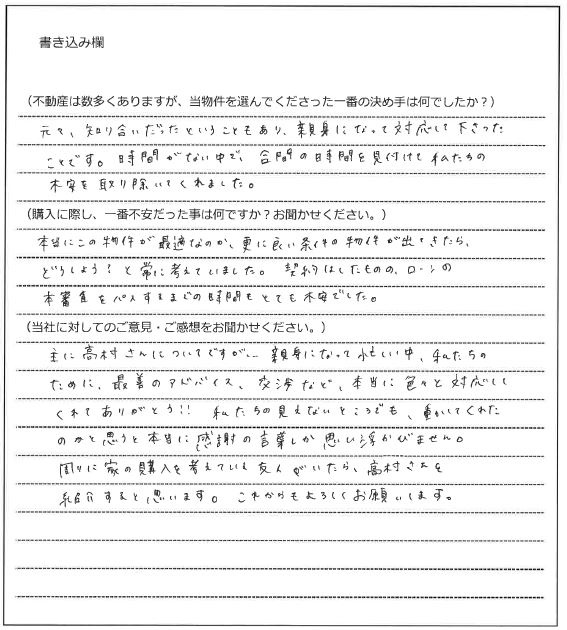 書き込み欄
（不動産は数多くありますが、当物件を選んでくださった一番の決め手は何でしたか？）
元々、知り合いだったということもあり、親身になって対応して下さった
ことです。時間がない中で、合間の時間を見付けて私たちの
不安を取り除いてくれました。
（購入に際し、一番不安だった事は何ですか？お聞かせください。）
本当にこの物件が最適なのか、更に良い条件の物件が出てきたら、
どうしよう？と常に考えていました。契約はしたものの、ローンの
本審査をパスするまでの時間もとても不安でした。
（当社に対してのご意見・ご感想をお聞かせください。）
主に高村さんについてですが… 親身になって忙しい中、私たちの
ために、最善のアドバイス、交渉など、本当に色々と対応して
くれてありがとう!! 私たちの見えないところでも、動かしてくれた
のかと思うと本当に感謝の言葉しか思い浮かびません。
周りに家の購入を考えている友人がいたら、高村さんを
紹介すると思います。これからもよろしくお願いします。